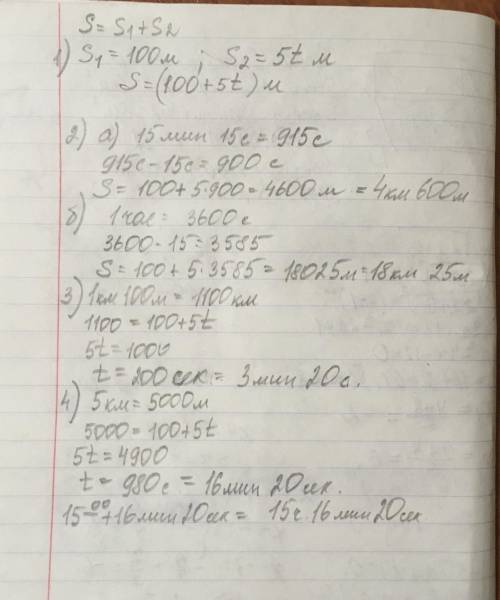 S = S₁ + S₂
1) S₁ = 100 м ; S₂ = 5t м
S = (100 + 5t) м
2) а) 15 мин 15 с = 915 с
915 с - 15 с = 900 с
S = 100 + 5·900 = 4600 м = 4 км 600 м
б) 1 час = 3600 с
3600 - 15 = 3585
S = 100 + 5·3585 = 18025 м = 18 км 25 м
3) 1 км 100 м = 1100 км
1100 = 100 + 5t
5t = 1000
t = 200 сек = 3 мин 20 с.
4) 5 км = 5000 м
5000 = 100 + 5t
5t = 4900
t = 980 с = 16 мин 20 сек.
15⁰⁰ + 16 мин 20 сек = 15 ч 16 мин 20 сек